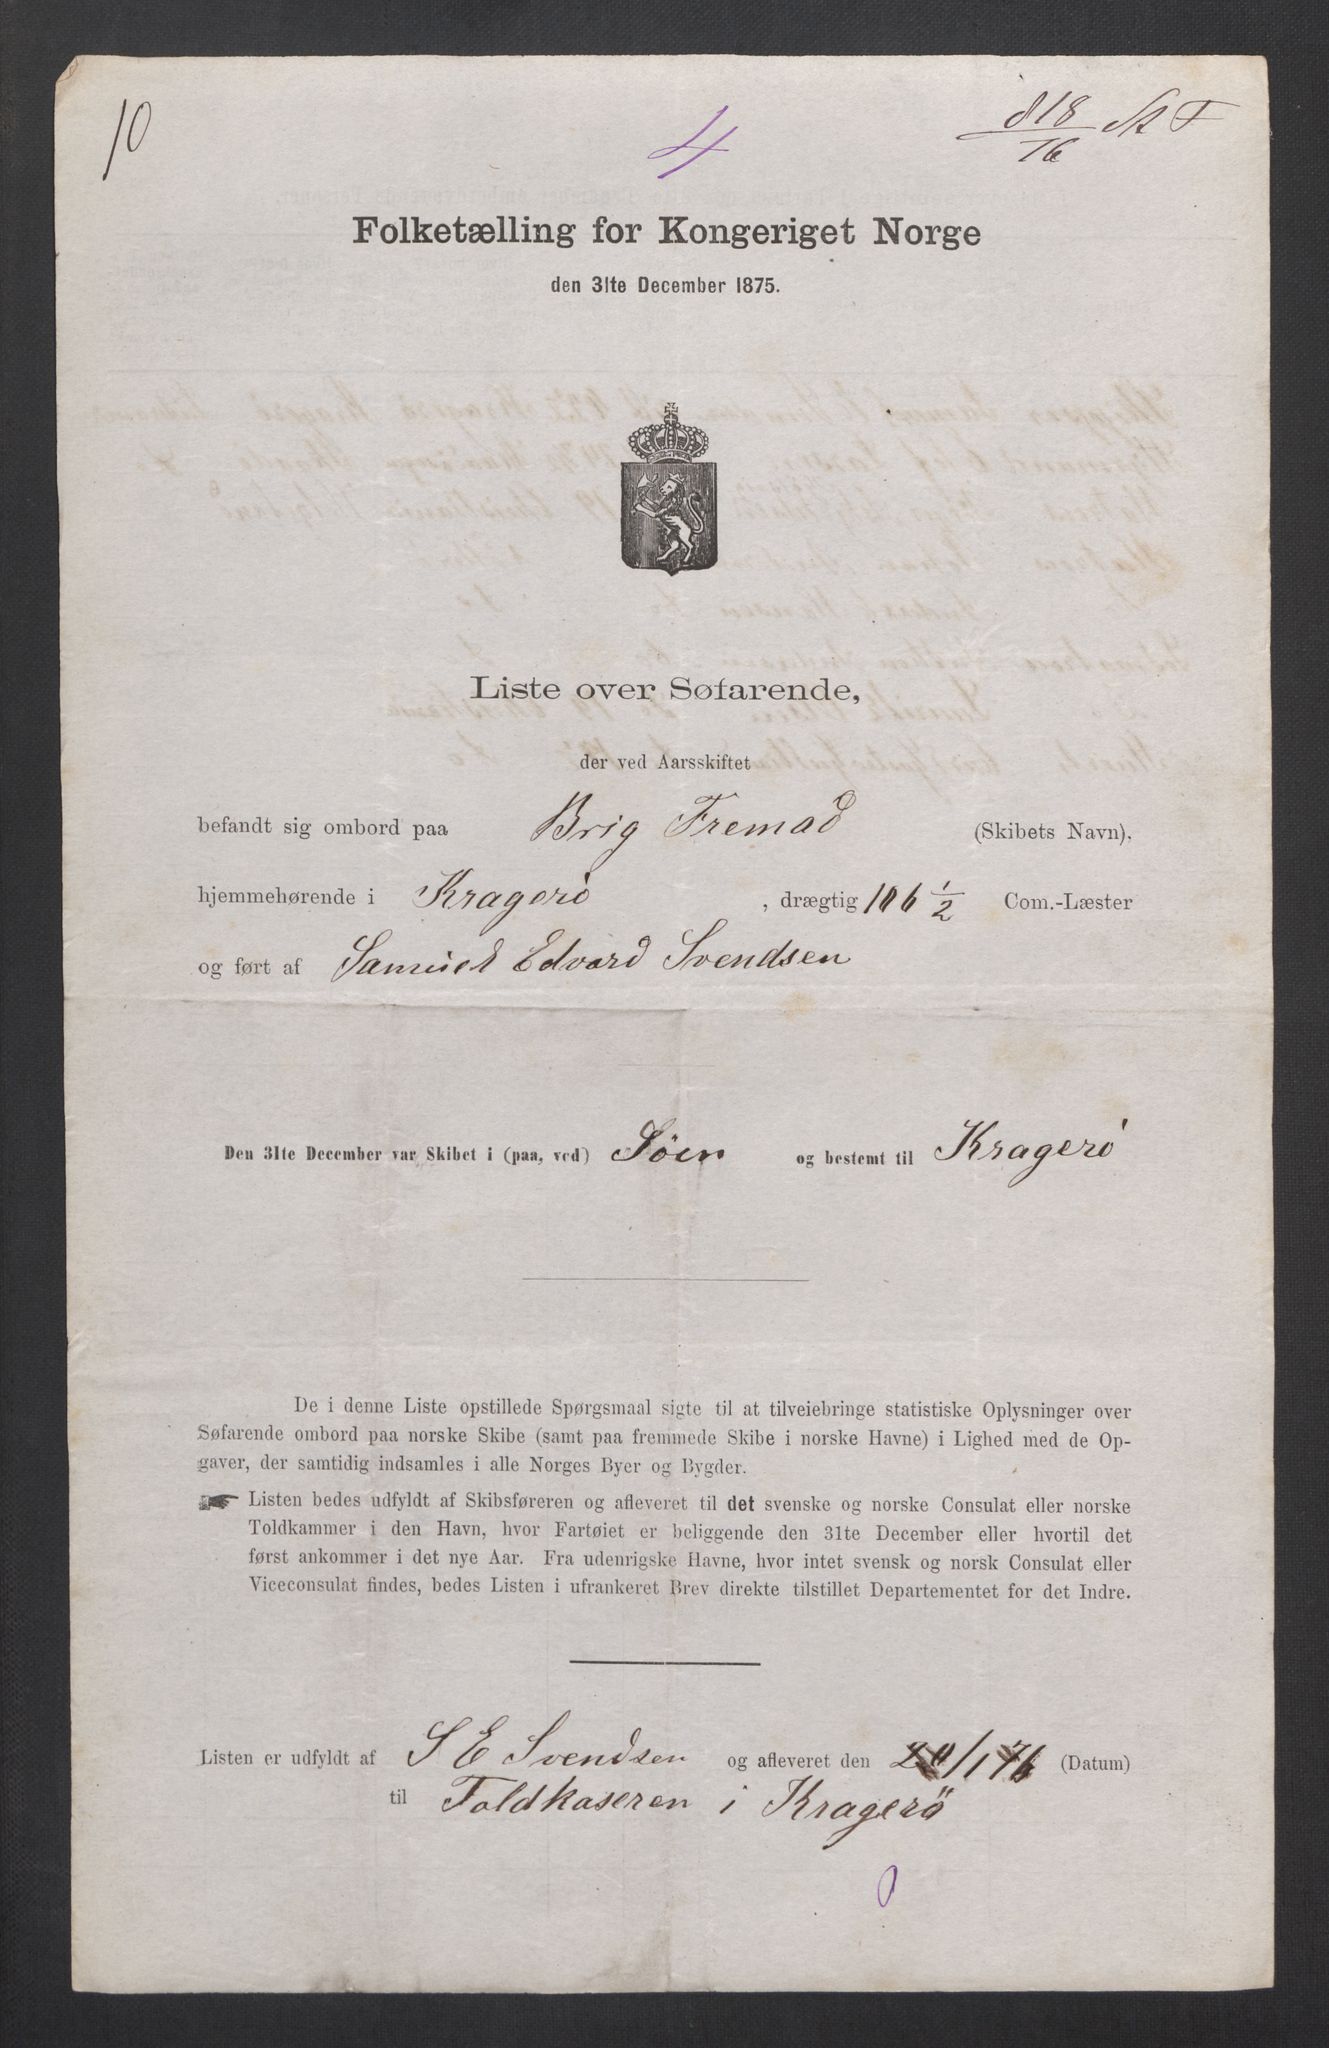 10
4
818/76
Folketælling for Kongeriget Norge
den 31te December 1875.
Liste over Søfarende,
der ved Aarsskiftet
befandt sig ombord paa Brig Fremad (Skibets Navn),
hjemmehørende i Kragerö, drægtig 106 1/2 Com.-Læster
og ført af Samuel Edvard Svendsen
Den 31te December var Skibet i (paa, ved) Söen og bestemt til Kragerö
De i denne Liste opstillede Spørgsmaal sigte til at tilveiebringe statistiske Oplysninger over
Søfarende ombord paa norske Skibe (samt paa fremmede Skibe i norske Havne) i Lighed med de Op-
gaver, der samtidig indsamles i alle Norges Byer og Bygder.
Listen bedes udfyldt af Skibsføreren og afleveret til det svenske og norske Consulat eller norske
Toldkammer i den Havn, hvor Fartøiet er beliggende den 31te December eller hvortil det
først ankommer i det nye Aar. Fra udenrigske Havne, hvor intet svensk og norsk Consulat eller
Viceconsulat findes, bedes Listen i ufrankeret Brev direkte tilstillet Departementet for det Indre.
Listen er udfyldt af S E Svendsen og afleveret den 20/1 76 (Datum)
til Toldkaseren i Kragerö